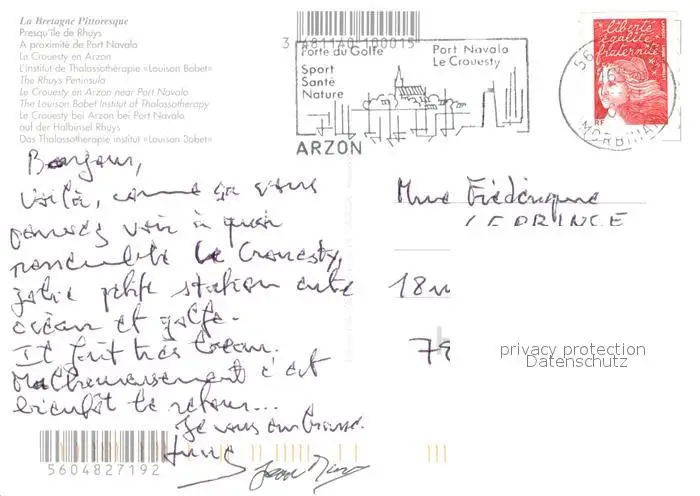 La Bretagne Pittoresque
Presqu'île de Rhuys
A proximité de Port Navalo
Le Crouesty en Arzon
L'institut de Thalassothérapie «Louison Bobet»
The Rhuys Peninsula
Le Crouesty en Arzon near Port Navalo
The Louison Bobet Institut of Thalassotherapy
Le Crouesty bei Arzon bei Port Navalo
auf der Halbinsel Rhuys
Das Thalassotherapie institut «Louison Bobet»
3 481140 100015
Porte du Golfe
Sport
Santé
Nature
Port Navalo
Le Crouesty
ARZON
liberté
égalité
fraternité
RF
56
MORBIHAN
Bonjour,
Voilà, comme ça vous
pouvez voir à quoi
ressemble le Crouesty,
jolie petite station entre
océan et golfe.
Il fait très beau.
Malheureusement c'est
bientôt le retour...
Je vous embrasse.
Mme Frédérique
LEPRINCE
18
79
privacy protection
Datenschutz
5604827192